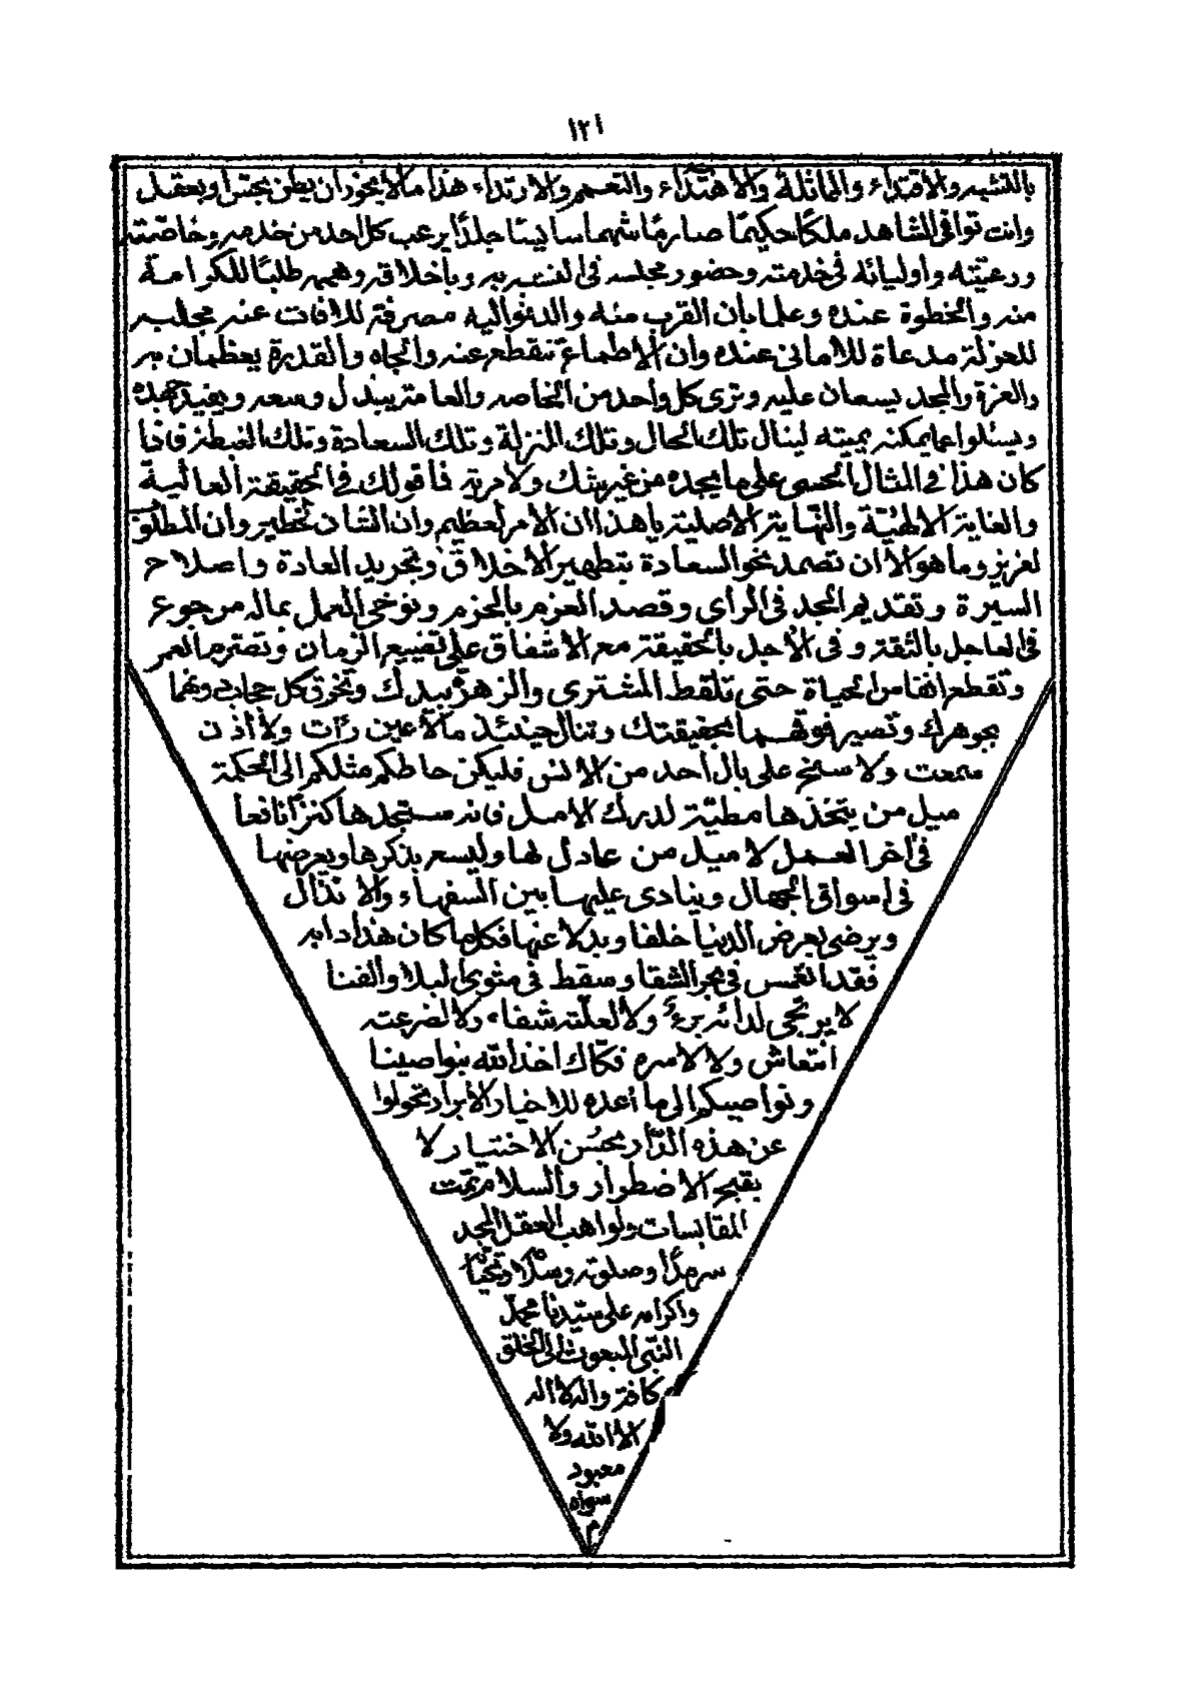 ١٢١
بالتشبيه والاقتداء والمماثلة والاهتداء والتعمم والارتداء هذا مالا يجوز ان يظن بجتس او بعقل
وانت توافى الشاهد ملكا حكيما صارما شهما سايسا جلدا يرغب كل احد من خدمه وخاصته
ورعيته واوليائه فى خدمته وحضور مجلسه فى التشبه به وباخلاقه وهممه طلبا للكرامة
منه والخطوة عنده وعلما بان القرب منه والدنو اليه مصرفة للافات عنه مجلبه
للعز له مدعاة للامانى عنده وان الاطماع تنقطع عنه والجاه والقدرة يعظمان به
والعزة والمجد يسعان عليه وترى كل واحد من الخاصه والعامة يبذل وسعه ويفيد جهده
ويسئلوا عما يمكنه بميته لينال تلك الحال وتلك المنزلة وتلك السعادة وتلك الغبطة فاذا
كان هذا فى المثال الحسى على ما يجده من غير شك ولا مرية فما قولك فى الحقيقة العالية
والغاية الالهية والنهاية الاصلية يا هذا ان الامر لعظيم وان الشان لخطير وان المطلوب
لعزيز وما هو الا ان تصمد نحو السعادة بتطهير الاخلاق وتجريد العادة واصلاح
السيرة وتقديم الجد فى الراى وقصد العزم بالحزم ونوخى العمل بماله مرجوع
فى العاجل بالثقة وفى الاجل بالحقيقة مع الاشفاق على تضييع الزمان وتصرم العمر
وتقطع انفاس الحياة حتى تلقط المشترى والزهرة بيدك وتخرق كل حجاب دونهما
بجوهرك وتصير فوقهما بحقيقتك وتنال حينئذ مالا عين رأت ولا أذن
سمعت ولا سنح على بال احد من الانس فليكن حاطكم مثلكم الى الحكمة
ميل من يتخذها مطية لدرك الامل فانه ستجدها كنزا نافعا
فى اخر العمل لا ميل من عادل لها وليسعر بذكرها ويعرضها
فى اسواق الجهال وينادى عليها بين السفهاء والانذال
ويرضى بعرض الدنيا خلفا وبدلا عنها فكل ما كان هذا دابه
فقد انغمس فى بحر الشقا وسقط فى مثوى البلا والفنا
لا يرتجى لدائه برء ولا لعلته شفاء ولا لضرعته
انتعاش ولا لاسره فكاك اخذ الله بنواصينا
ونواصيكم الى ما أعده للاخيار الابرار تحولوا
عن هذه الدار بحسن الاختيار لا
بقبح الاضطرار والسلام تمت
المقابسات ولواهب العقل المجد
سرمدا وصلوته وسلامه وتحياته
واكرامه على سيدنا محمد
النبى المبعوث الى الخلق
كافة والله لا اله
الا الله ولا
معبود
سواه
م